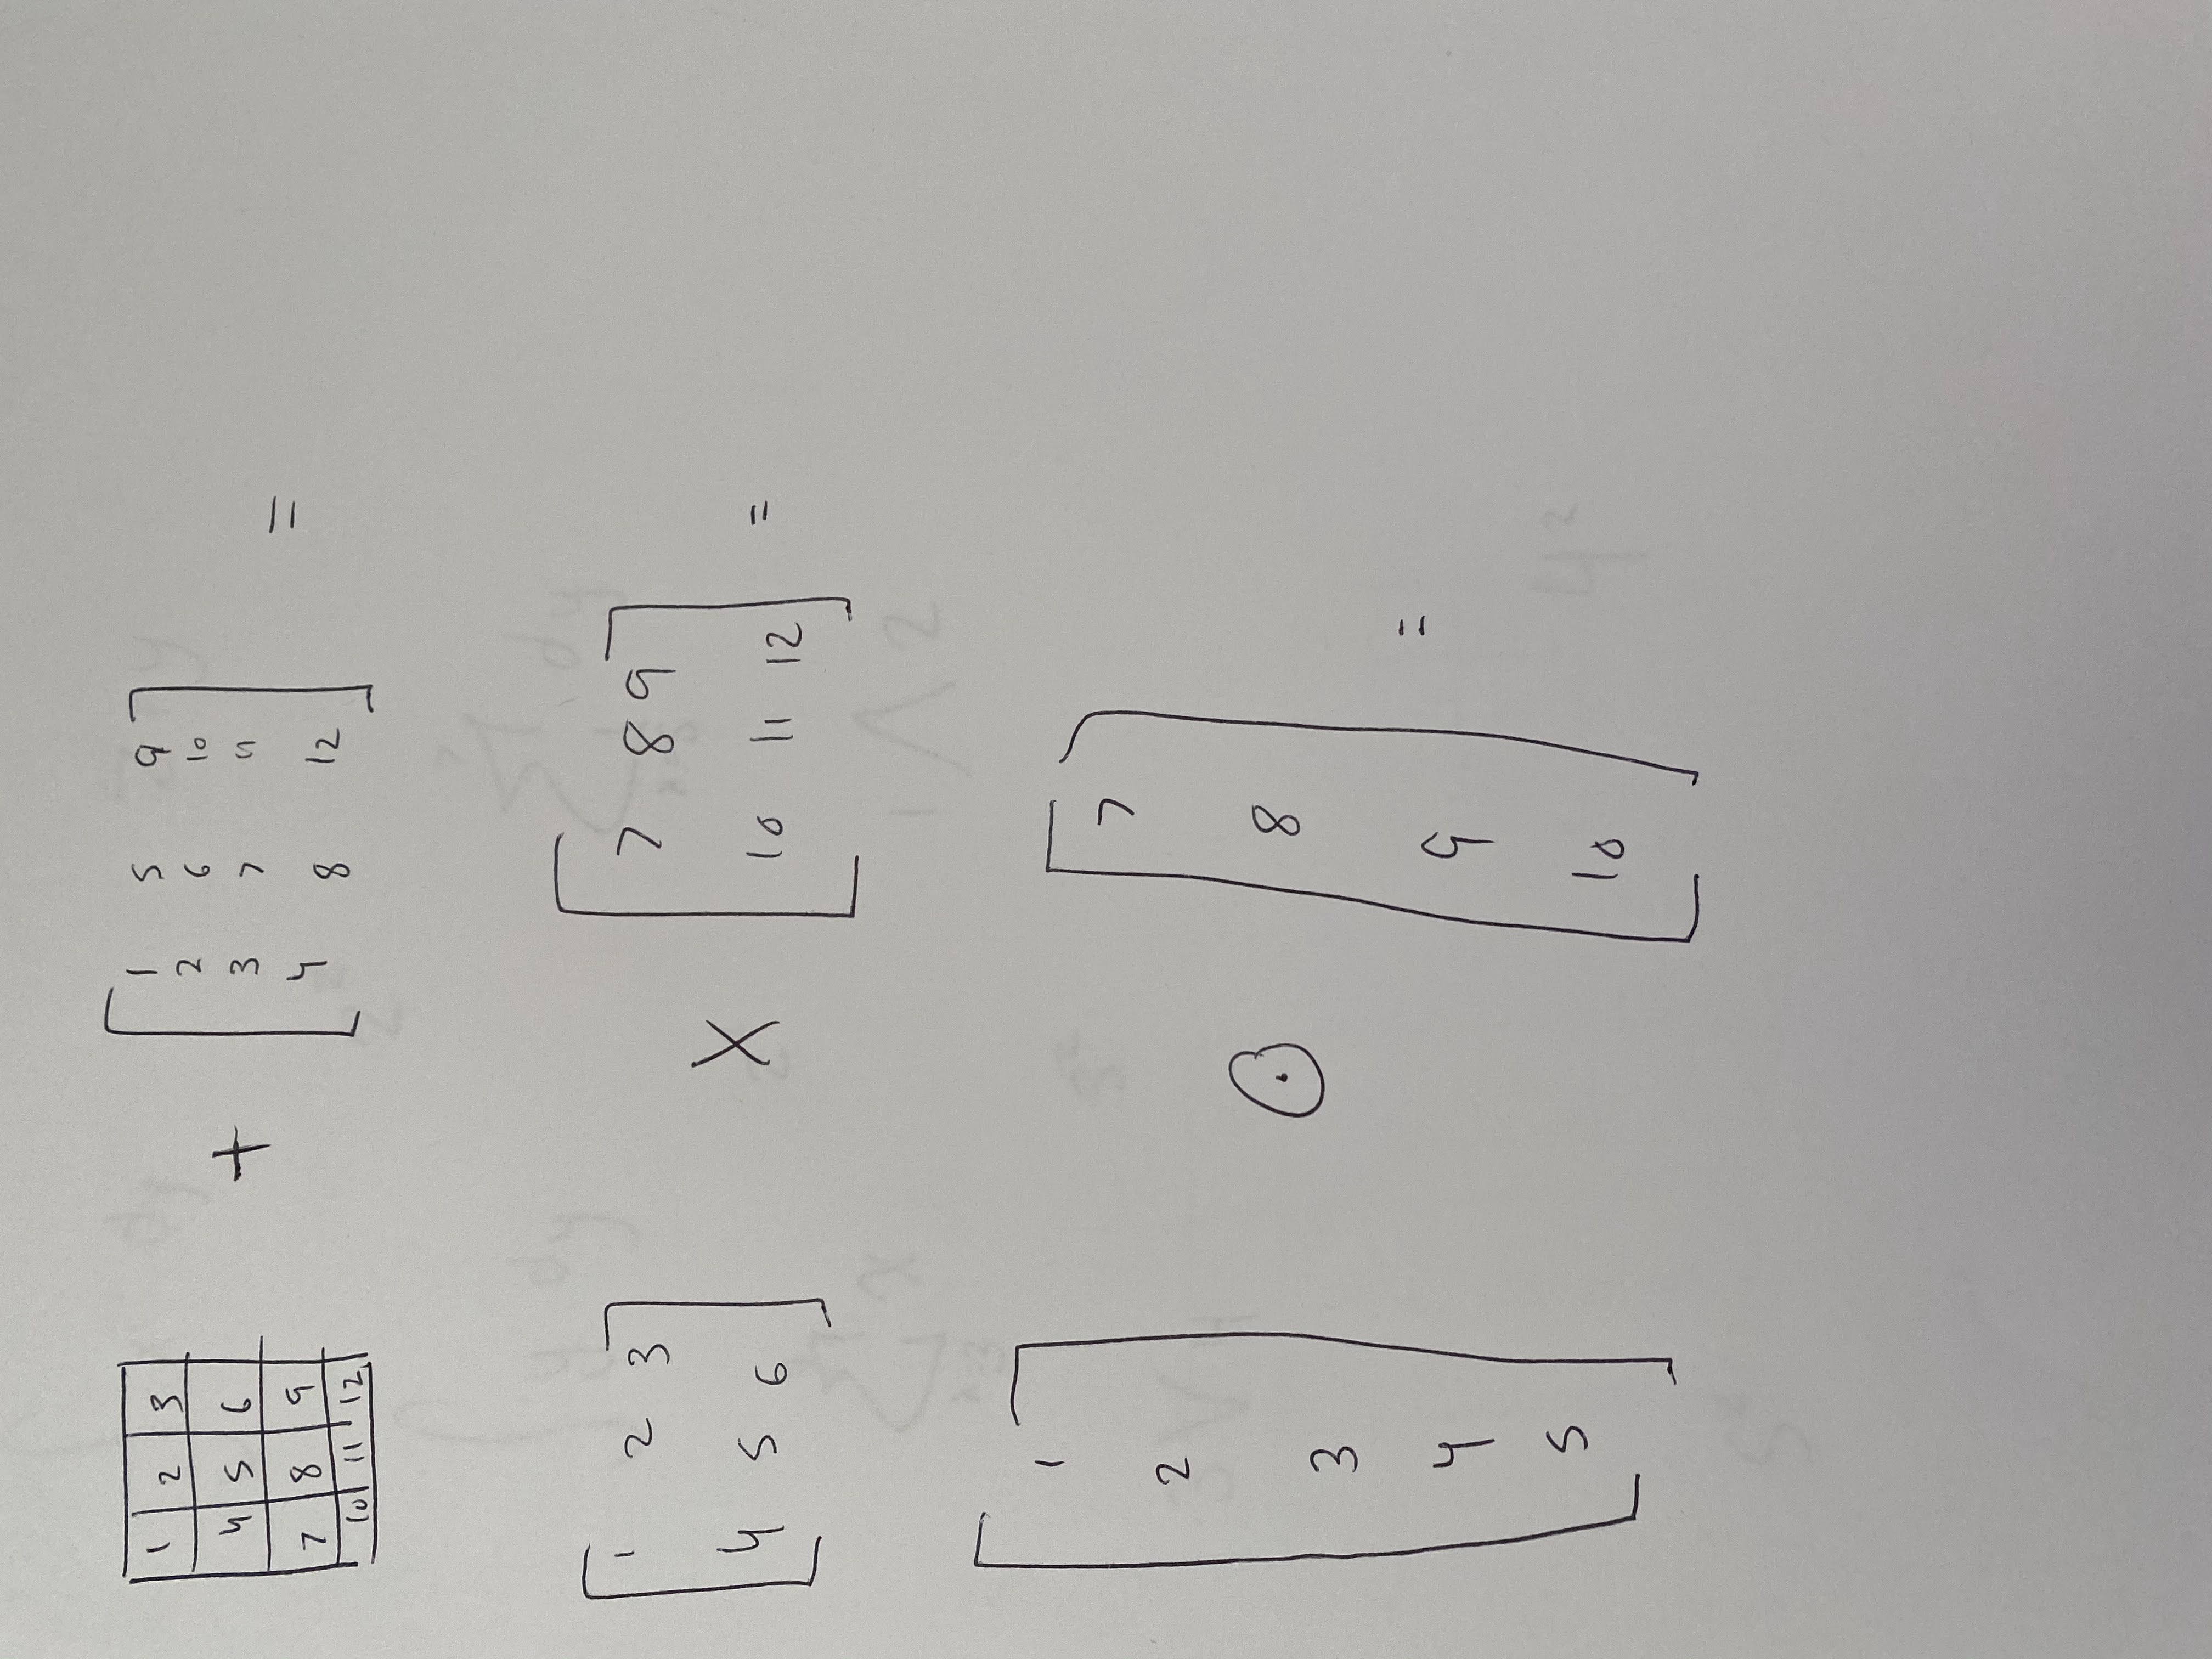 1 2 3
4 5 6
7 8 9
10 11 12
+
1 5 9
2 6 10
3 7 11
4 8 12
=
1 2 3
4 5 6
X
7 8 9
10 11 12
=
1
2
3
4
5
⊙
7
8
9
10
=